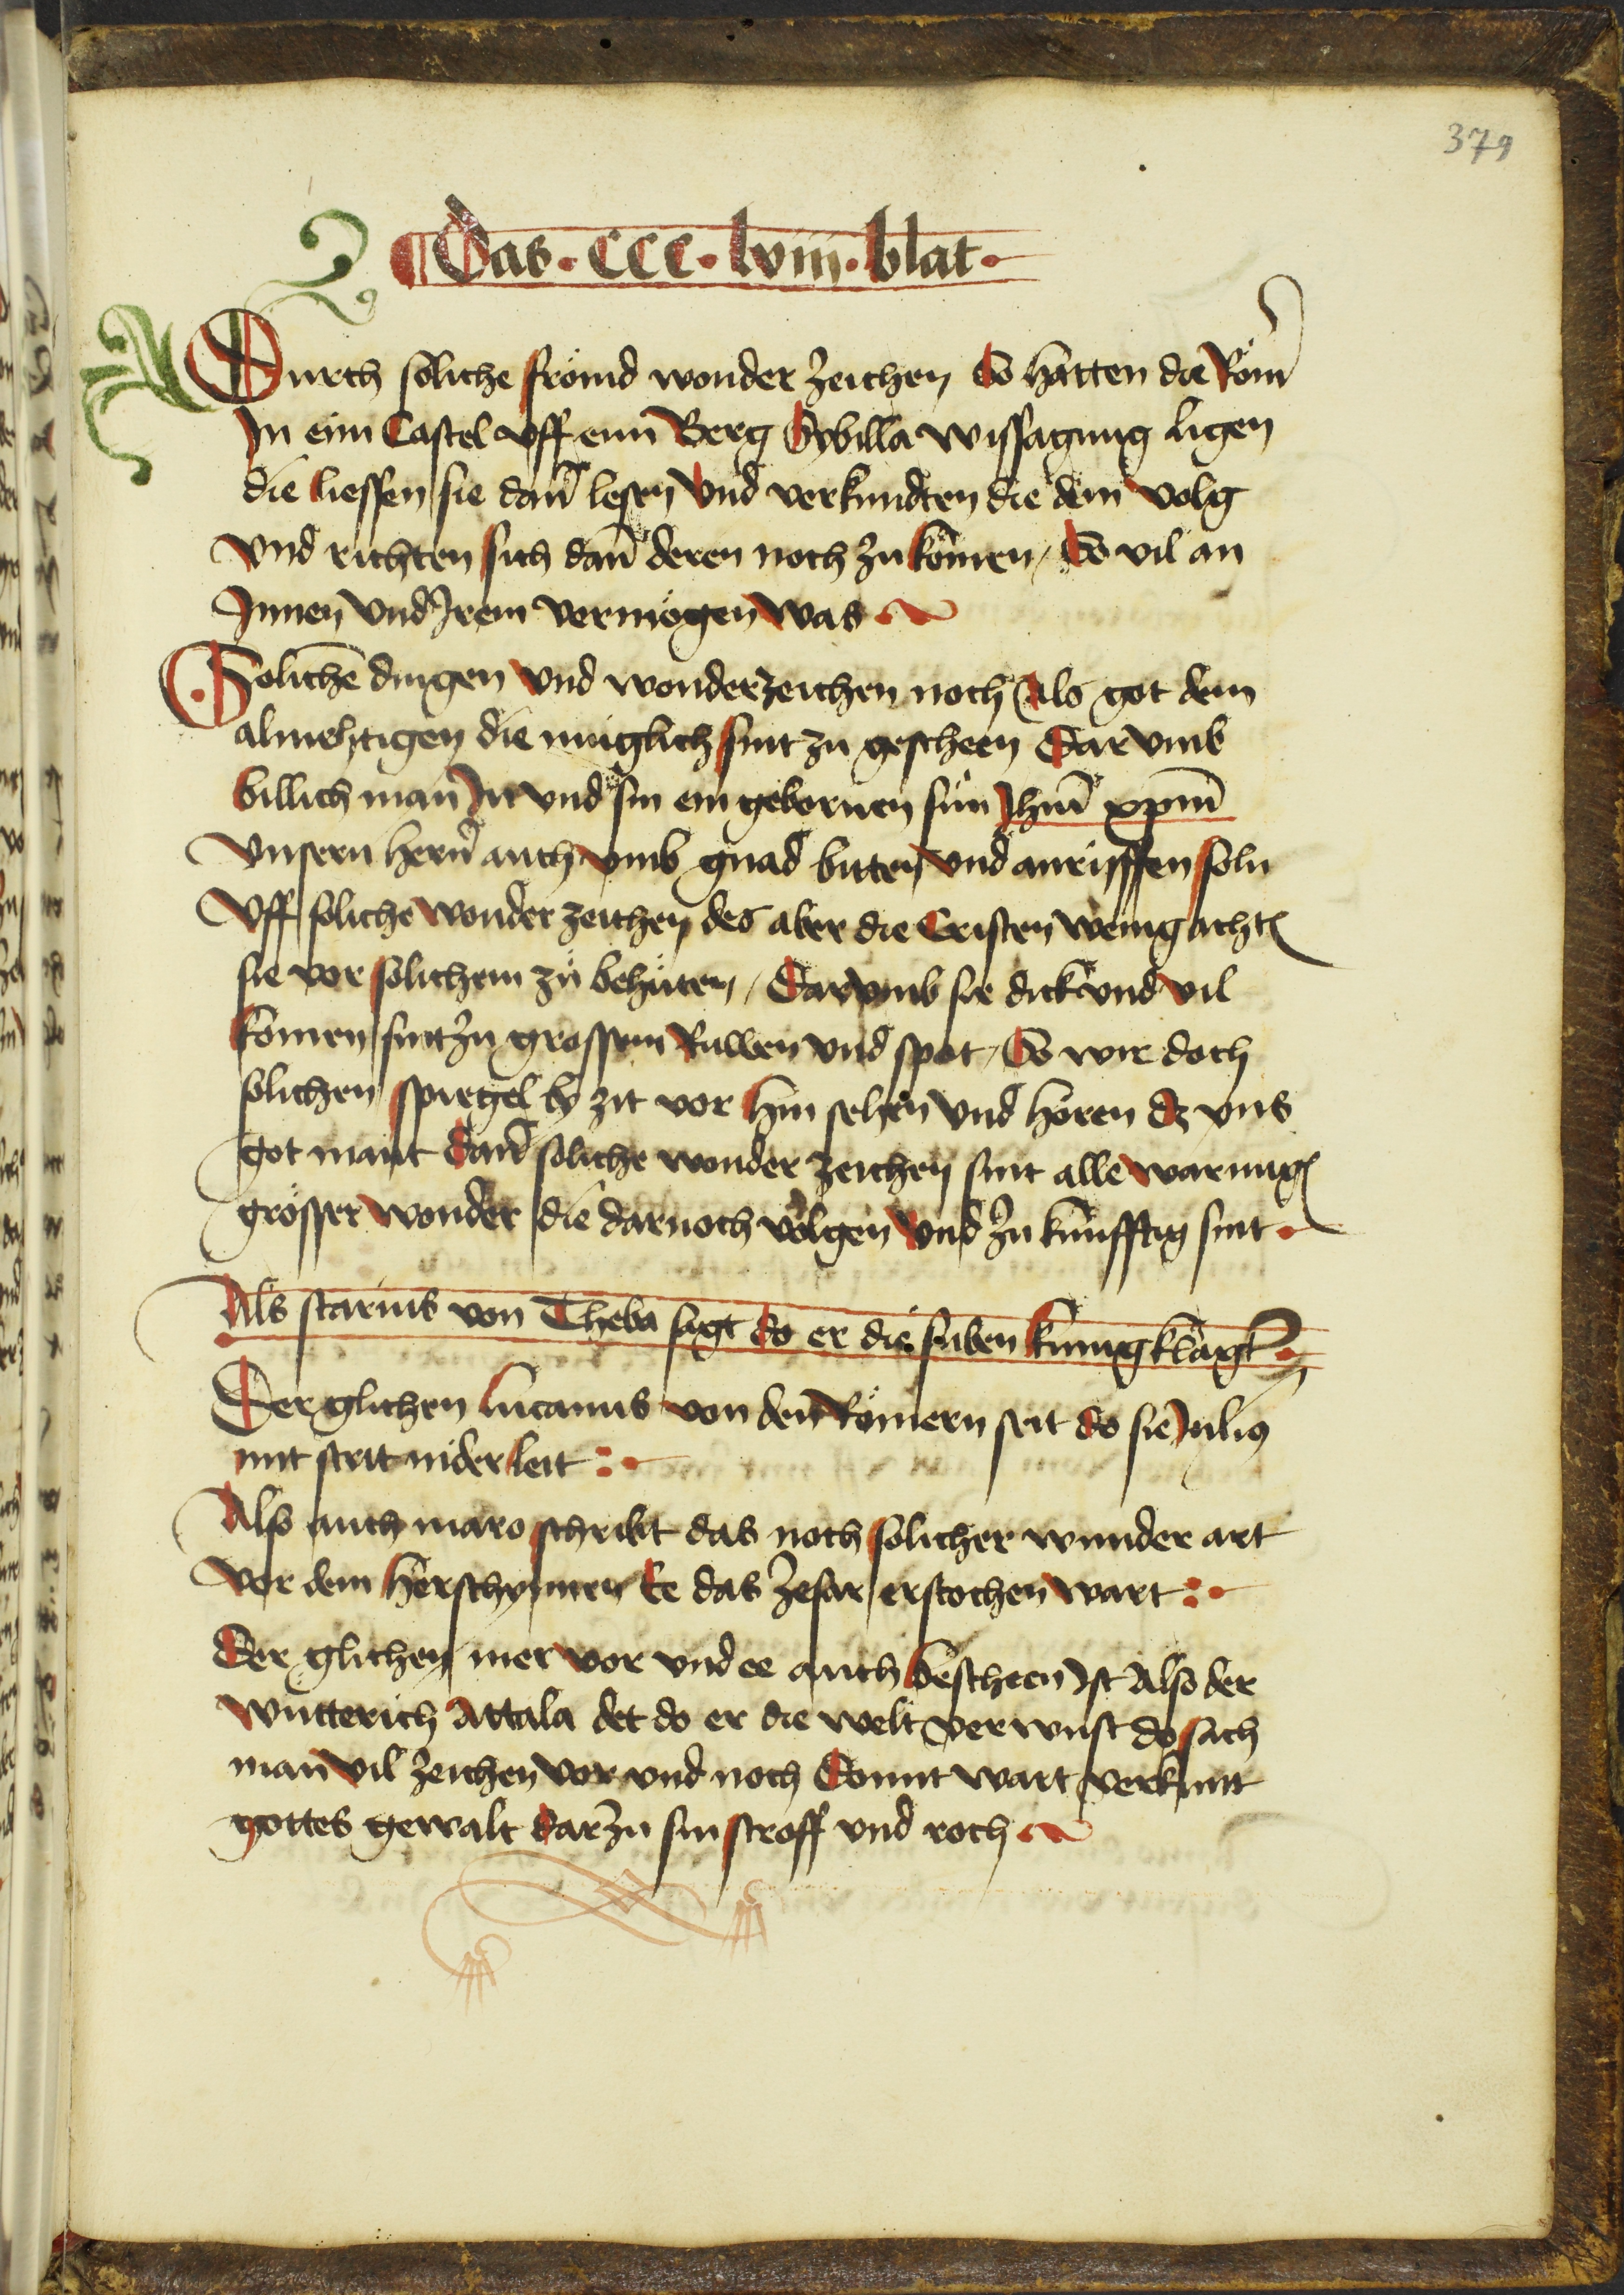 379
¶ Das · CCC · lviij · blat ·
Durch soliche frömd wonder zeichen So hatten die Röm̄
In eim Castel vff eim Berg Sybilla wissagung ligen
die liessen sie dan̄ lesen Vnd verkundten die dem volg
vnd richten sich dan̄ deren noch zu kom̄en / So vil an
Innen vnd Irem vermögen was
Soliche dingen vnd wonderzeichen noch Als got dem
almehtigen die müglich sint zu gescheen Dar vmb
billich man In vnd sin ein gebornen sün Jhm̄ xpm̄
vnsern hern̄ auch vmb gnad bitten vnd anrüffen soln
Vff soliche wonder zeichen des aber die Cristen wenig achte
sie vor solichem zü behüten / Darumb sie dick vnd vil
komen sint zu grossem Ruwen vnd spot / So wir doch
solichen spiegel by zit vor hin sehen vnd horen dz vns
got mant Dan̄ soliche wonder zeichen sint alle warnung
grösser wonder die darnoch volgen Vnd zu künfftig sint ·
Als starius von Theba sagt do er die siben kunig klagt
Der glichen lucanus von den Römern seit do sie Julius
mit strit nider leit :·
Also auch maro schribt das noch solicher wunder art
Vor dem herschynnen Ee das zesar erstochen wart :·
Der glichen mer vor vnd ee auch bescheen Ist Also der
wutterich Attala det do er die welt verwust do sach
man vil zeichen vor vnd noch Domit wart verkunt
gottes gewalt dar zu sin stroff vnd roch